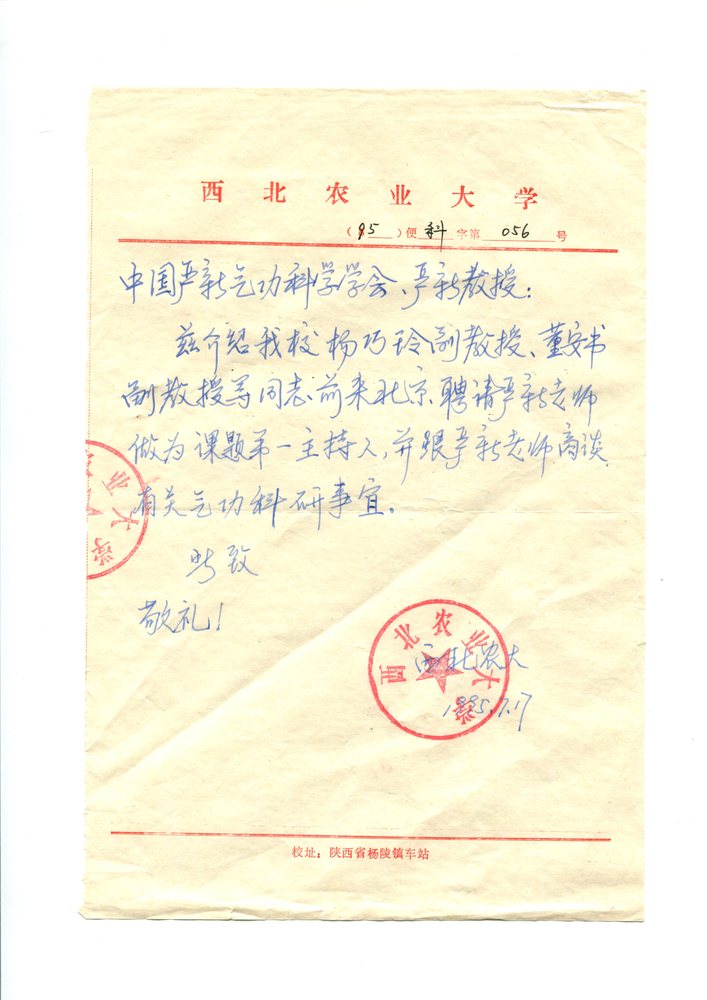 西北农业大学
（95）便科字第 056 号
中国严新气功科学学会、严新教授：
兹介绍我校杨巧玲副教授、董安书
副教授等同志前来北京聘请严新老师
做为课题第一主持人，并跟严新老师商谈
有关气功科研事宜。
此致
敬礼！
西北农业大学
西北农大
1995.7.17
业大学
校址：陕西省杨陵镇车站